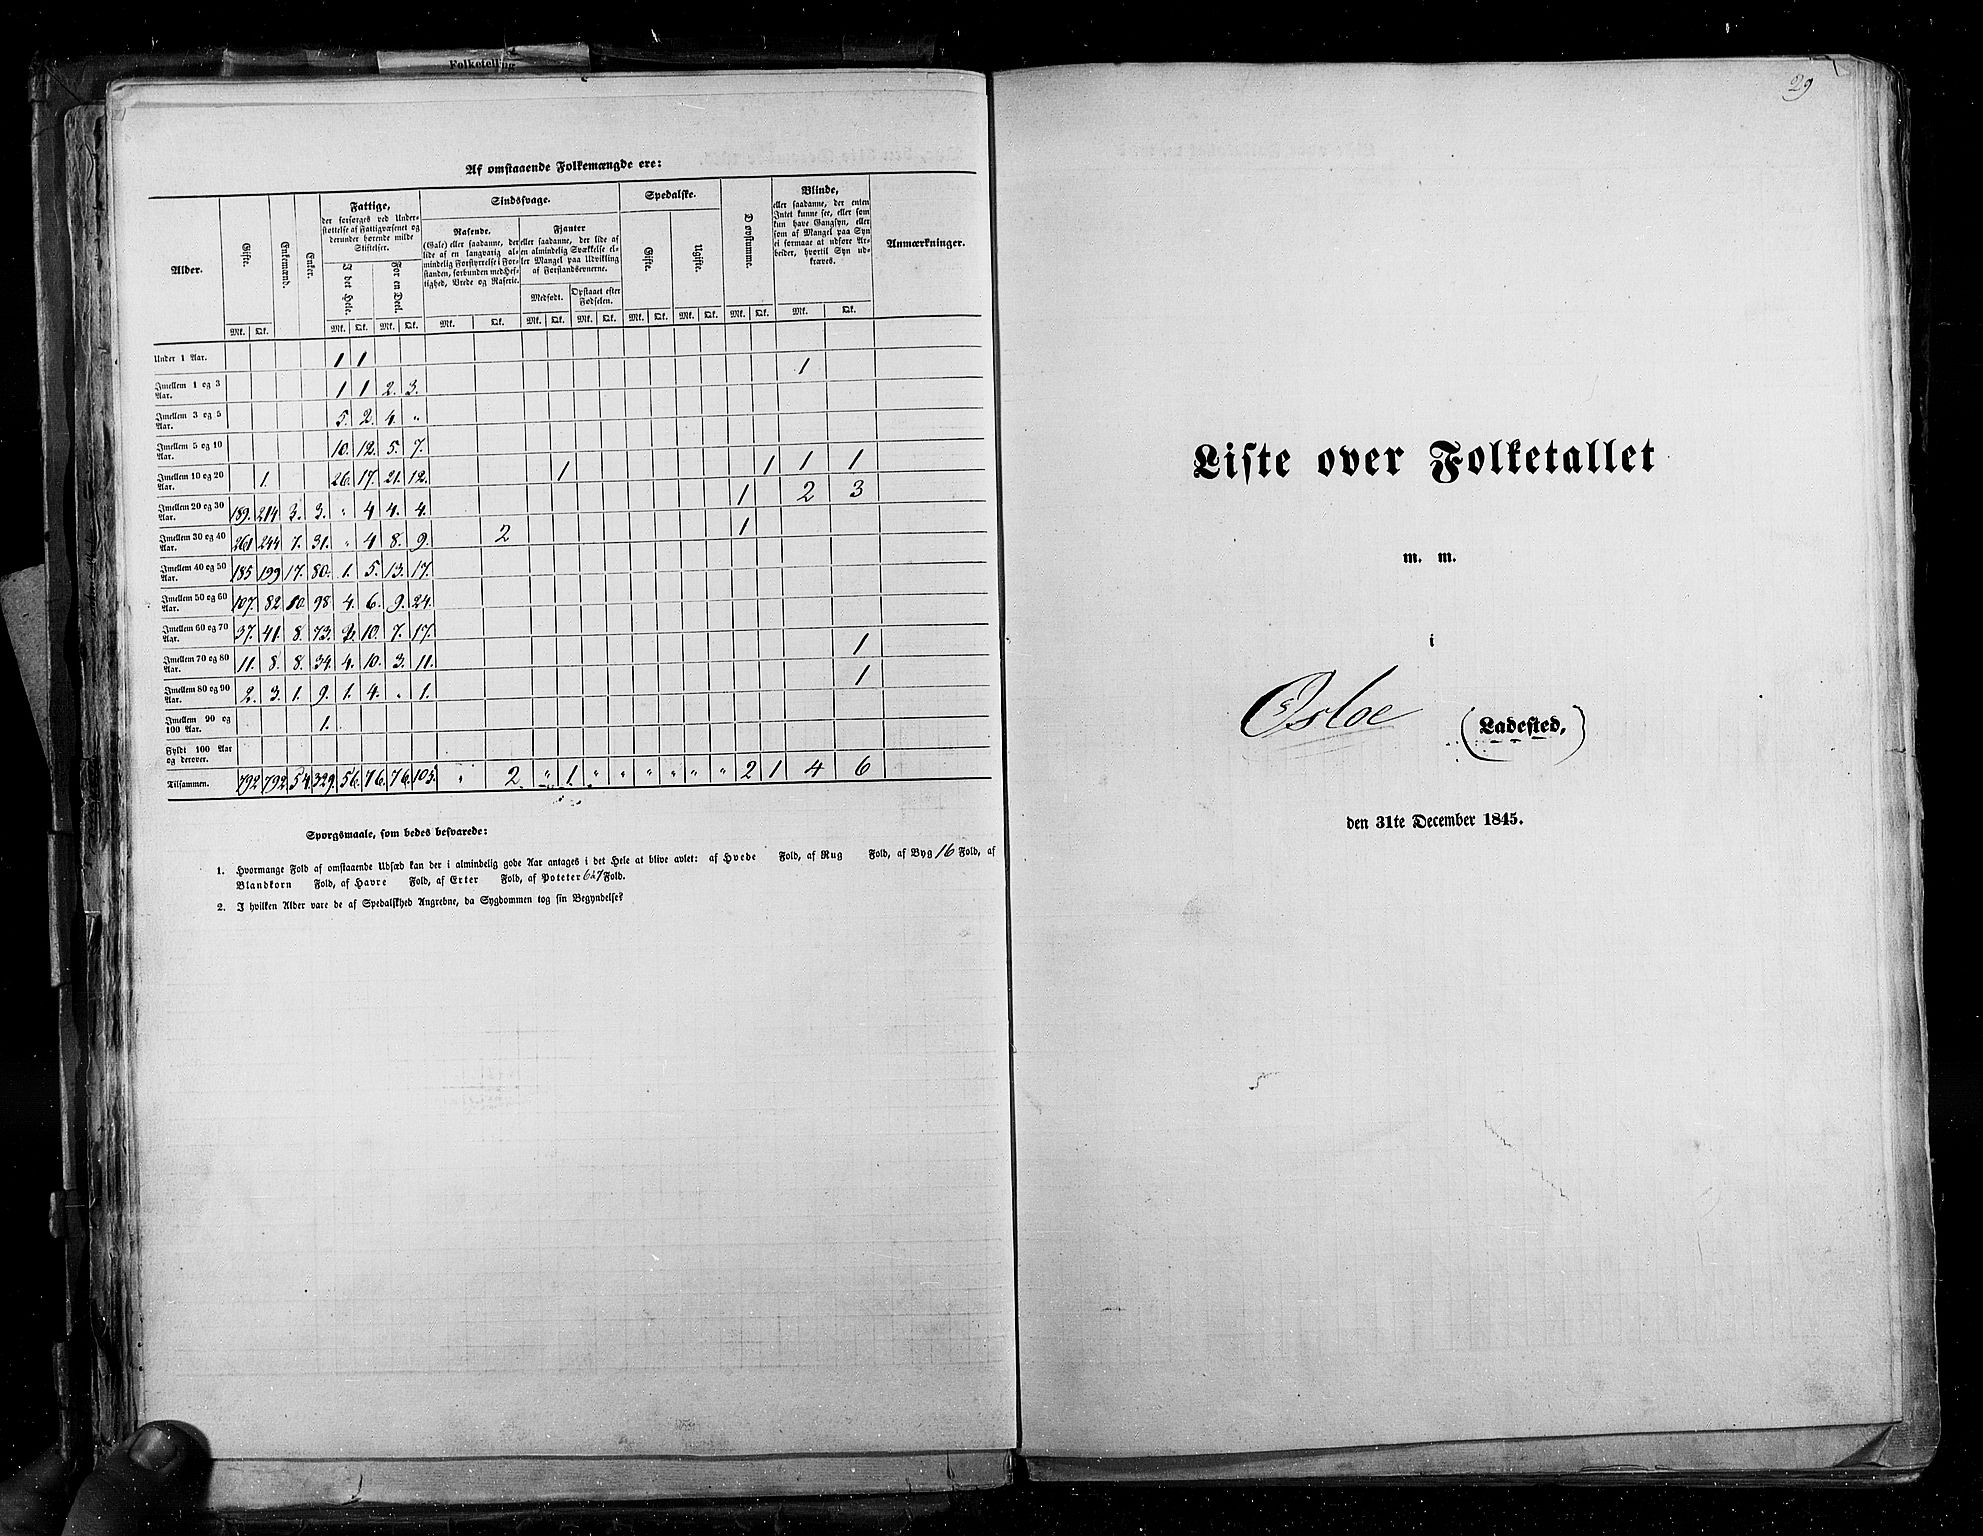 Folketelling
Af omstaaende Folkemængde ere:
Alder. | Gifte. | Enkemænd. | Enker. | Fattige, | Sindssvage. | Spedalske. | Døvstumme. | Blinde, | Anmærkninger.
der forsørges ved Under-
støttelse af Fattigvæsenet og
derunder hørende milde
Stiftelser.
I det Hele. | For en Deel.
Rasende.
(Gale) eller saadanne, der
lide af en langvarig al-
mindelig Forstyrrelse i For-
standen, forbunden med Hef-
tighed, Vrede og Raserie.
Fjanter
eller saadanne, der lide af
en almindelig Svækkelse el-
ler Mangel paa Udvikling
af Forstandsevnerne.
Medfødt. | Opstaaet efter
Fødselen.
Gifte. | Ugifte.
eller saadanne, der enten
Intet kunne see, eller som
kun have Gangsyn, eller
som af Mangel paa Syn
ei formaae at udføre Ar-
beider, hvortil Syn ud-
kræves.
Mk. | Qk. | Mk. | Qk. | Mk. | Qk. | Mk. | Qk. | Mk. | Qk. | Mk. | Qk. | Mk. | Qk. | Mk. | Qk. | Mk. | Qk. | Mk. | Qk.
Under 1 Aar. | 1 | 1
Imellem 1 og 3 Aar. | 1 | 1 | 2. | 3. | 1
Imellem 3 og 5 Aar. | 5. | 2. | 4. | "
Imellem 5 og 10 Aar. | 10. | 12. | 5. | 7.
Imellem 10 og 20 Aar. | 1. | 26. | 17. | 21. | 12. | 1 | 1 | 1 | 1
Imellem 20 og 30 Aar. | 189. | 214 | 3. | 3. | " | 4 | 4. | 4. | 1 | 2 | 3
Imellem 30 og 40 Aar. | 261 | 244 | 7. | 31. | " | 4 | 8. | 9. | 2 | 1
Imellem 40 og 50 Aar. | 185 | 199 | 17. | 80. | 1. | 5. | 13. | 17.
Imellem 50 og 60 Aar. | 107. | 82. | 10. | 98 | 4. | 6. | 9. | 24.
Imellem 60 og 70 Aar. | 37. | 41. | 8. | 73. | 10. | 7. | 17.
Imellem 70 og 80 Aar. | 11. | 8. | 8. | 34. | 4. | 10. | 3. | 11. | 1
Imellem 80 og 90 Aar. | 2. | 3. | 1. | 9. | 1. | 4. | " | 1. | 1
Imellem 90 og 100 Aar. | 1.
Fyldt 100 Aar og derover.
Tilsammen. | 792 | 792 | 54 | 329. | 56. | 76. | 76. | 103. | " | 2 | " | 1. | " | " | " | " | " | " | 2 | 1 | 4 | 6
Spørgsmaale, som bedes besvarede:
1. Hvormange Fold af omstaaende Udsæd kan der i almindelig gode Aar antages i det Hele at blive avlet: af Hvede Fold, af Rug Fold, af Byg 16 Fold, af
Blandkorn Fold, af Havre Fold, af Erter Fold, af Poteter 6 à 7 Fold.
2. I hvilken Alder vare de af Spedalskhed Angrebne, da Sygdommen tog sin Begyndelse?
29
Liste over Folketallet
m. m.
i
Osloe (Ladested,)
den 31te December 1845.